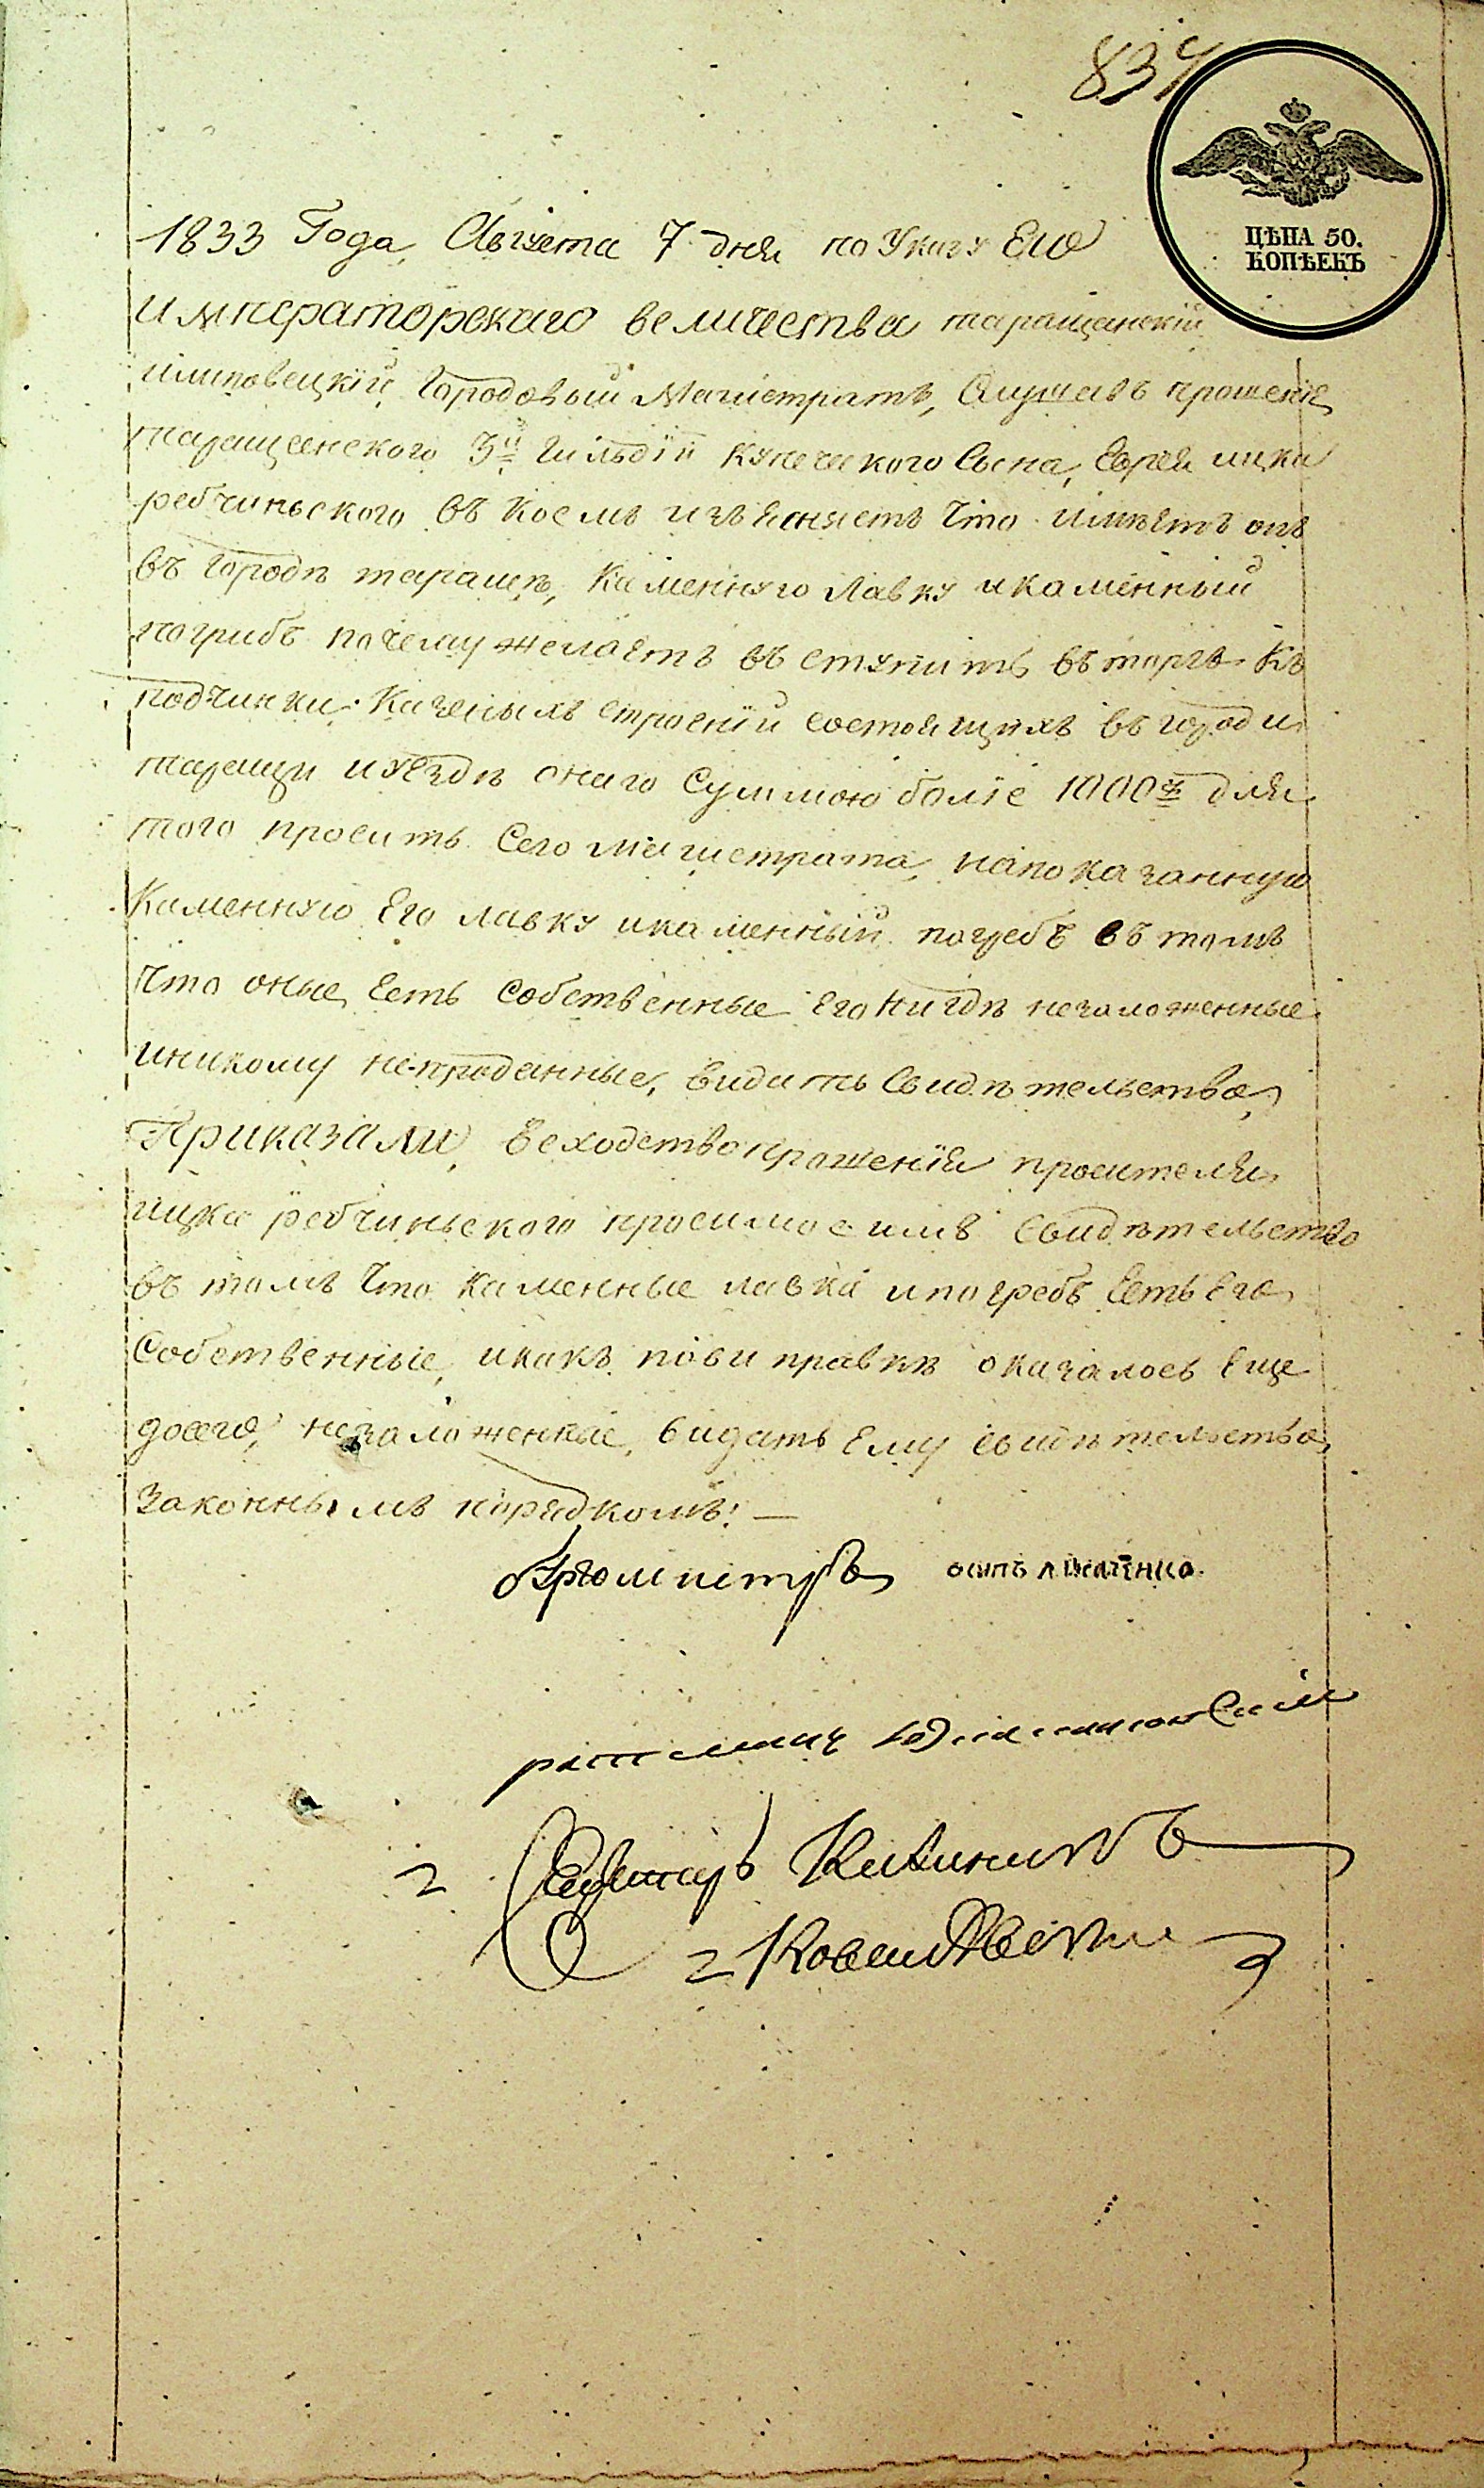 834
ЦѢНА 50.
КОПѢЕКЪ
1833 Года, Августа 7 дня по Указу Его
императорскаго величества таращанскій
илиповецкій Городовый Магистратъ, Слушавъ прошеніе
таращеенского 3й Гильдіи Купеческого Сына, Еврея ицка
ребчиньского въ коемъ изъЕсняетъ Что имѣетъ онъ
въ Городѣ таращѣ, Каменную Лавку икаменный
погрибъ почему желаетъ въ ступить въ торгъ Къ
подчинки Казеныхъ строеній состоящихъ въ городи
таращи иуЕздѣ онаго Суммою боліе 1000 для
того проситъ Сего магистрата, напоказанную
Каменную Его лавку икаменный погребъ въ томъ
Что оные Есть Собственные Его нигдѣ незаложенные
иникому непроданные, видать Свидѣтельство,
Приказали, Веходство прошенія просителя
ицка ребчиньского просимое имъ Свидѣтельство
въ томъ Что каменные лавка ипогребъ Есть Его
Собственные, икакъ пови правкѣ оказалось Еще
досего, незаложенные, видать Ему свидѣтельство
Законнымъ порядкомъ: —
осипъ
ратманъ
Секретарь